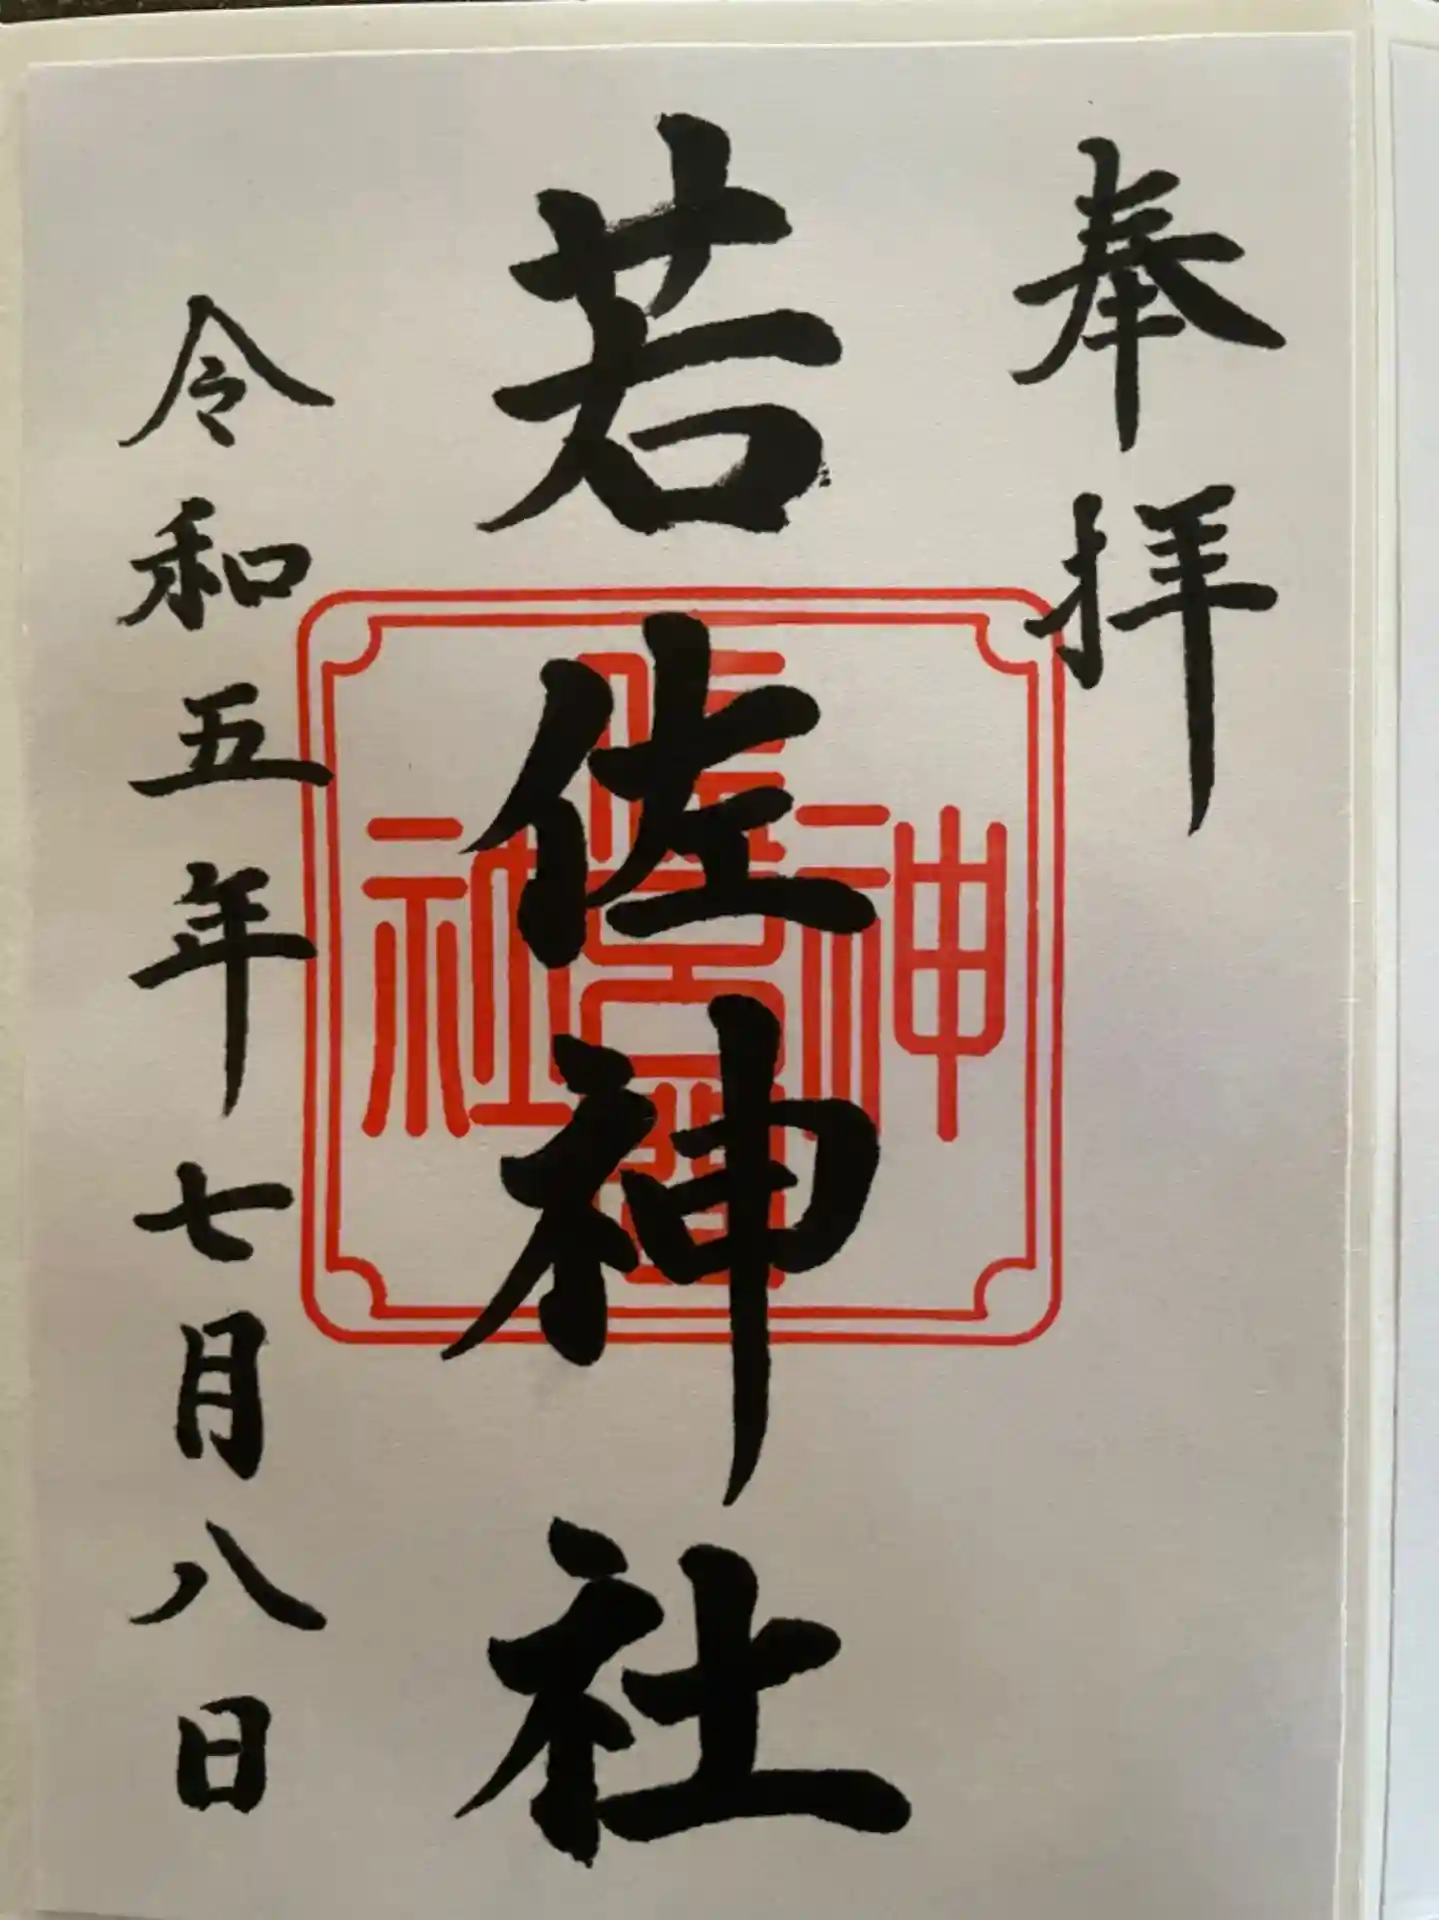 奉拝
若佐神社
令和五年七月八日
神
社